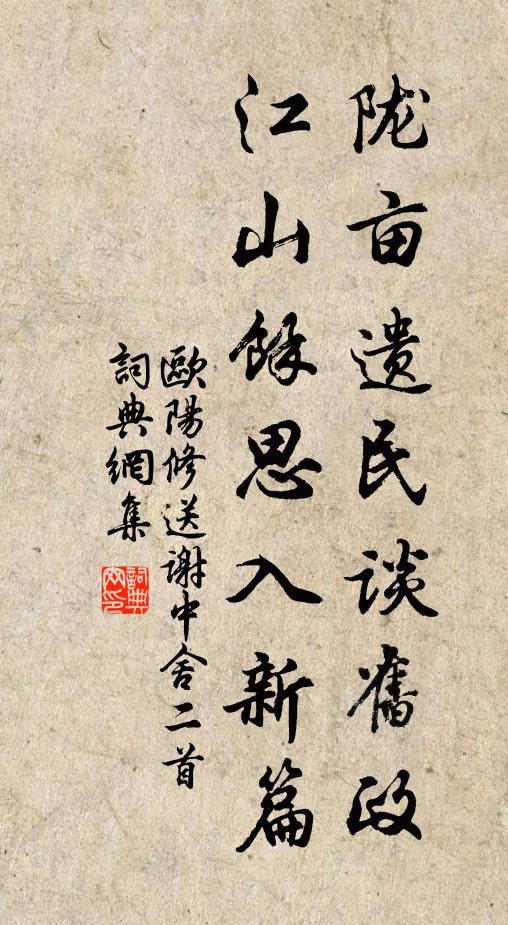 陇亩遗民谈舊政
江山餘思入新篇
歐陽修送谢中舍二首
詞典網集
詞典网印